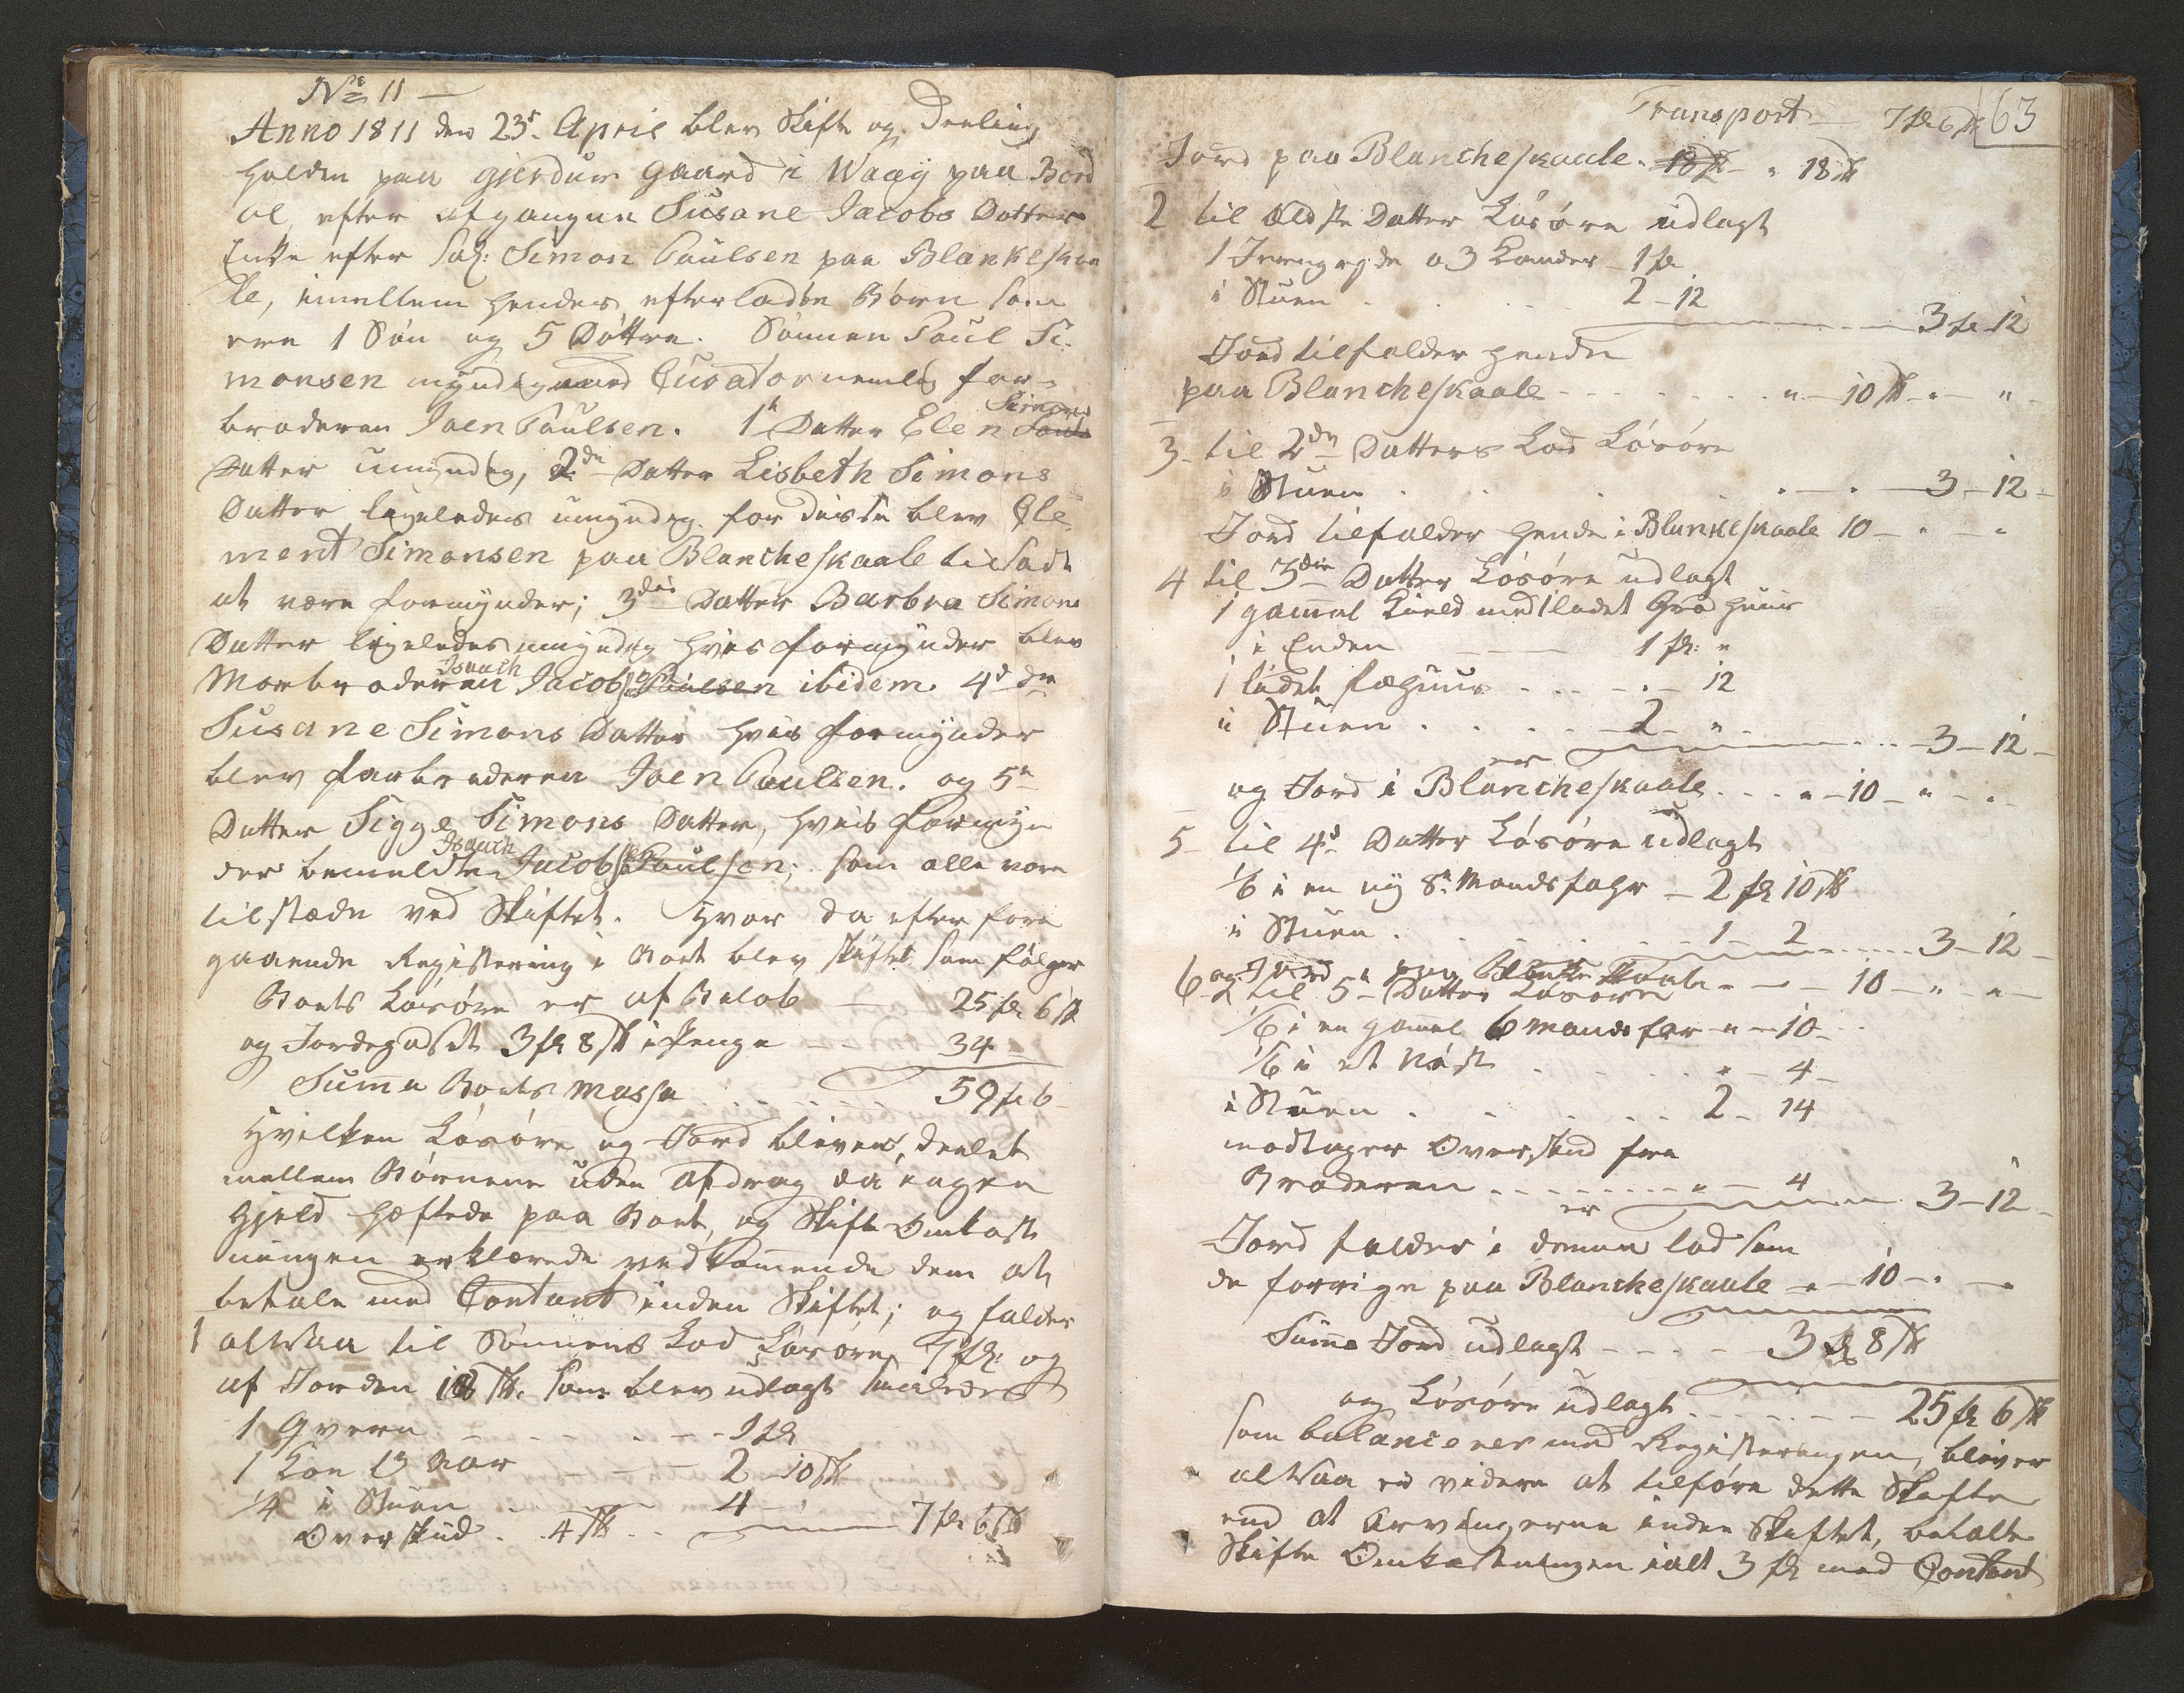 No 11 —
Anno 1811 den 23de April blev Skifte og Deeling
holden paa gjerdum Gaard i Waaÿ paa Bord
øe, efter afgangne Susane Jacobs Datter
Enke efter Sal: Simon Paulsen paa Blankeskaa
le, imellem hendes efterladte Børn som
ere 1 Søn og 5 Døttre. Sønnen Paul Si-
monsen myndig med Curator nemlig far-
broderen Joen Paulsen. 1te Datter Elen Simons
Datter umyndig, 2de Datter Lisbeth Simons
Datter ligeledes umyndig. for disse blev Cle
ment Simonsen paa Blancheskaale tilsadt
at være formynder; 3die Datter Barbra Simons
Datter ligeledes umyndig hvis formynder blev
Morbroderen Isaach Jacobsen ibidem. 4de do
Susane Simons Datter hvis formynder
blev farbroderen Joen Paulsen. og 5te
Datter Sigge Simons Datter, hvis formyn
der bemeldte Isaach Jacobsen; som alle vare
tilstæde ved Skiftet. Hvor da efter fore
gaaende Registering i Boet blev skiftet som følger
Boets Løsøre er af Beløb — 25 fl 6 sk
og Jordegodset 3 fl 8 sk i Penge — 34
Summa Boets Massa . . . . 59 fl 6
Hvilken Løsøre og Jord bliver, deelet
mellem Børnene uden Afdrag da ingen
Gjeld hæftede paa Boet, og Skifte Omkost
ningen erklærede vedkommende dem at
betale med Contant inden Skiftet; og falder
1 altsaa til Sønnens Lod Løsøre 7 fl: og
af Jorden 18 sk. som blev udlagt saaledes
1 Qvern — — — 1 fl
1 Koe 13 Aar — — 2 — 10 sk
1/4 i Stuen — 4 —
Overskud . . 4 sk . . 7 fl 6 sk
Transport — 7 fl 6 sk 63
Jord paa Blancheskaale. 18 sk — " 18 sk
2 til Ældste Datter Løsøre udlagt
1 Jerngryde a 3 Kander — 1 fl
i Stuen . . . 2 — 12
3 fl 12
Jord tilfalder hende
paa Blancheskaale - - - - " — 10 sk — " — "
3 — til 2den Datters Lod Løsøre
i Stuen . . . . — 3 — 12 —
Jord tilfalder hende i Blankeskaale 10 — " — "
4 til 3die Datter Løsøre udlagt
1 gammel Kield med 1 ladet Græ huus
i Enden — 1 fl: "
1 lidet fæhuus . . . — 12
i Stuen . . . . 2 — " .
er . . . 3 — 12 —
og Jord i Blancheskaale . . . " — 10 — " — "
5 — til 4de Datter Løsøre udlagt
1/6 i en ny 8te Mandsfahr — 2 fl 10 sk
i Stuen . . . . 1 — 2 . . . 3 — 12 —
og Jord paa Blanke Skaale — — — 10 — " — " —
6 — til 5te Datter Løsøre
1/6 i en gamel 6 mands far — " — 10 —
1/6 i et Nøst . . . . " — 4 —
i Stuen . . . . 2 — 14
modtager Overskud fra
Broderen . . . . " — 4
er . . . 3 — 12 —
Jord falder i denne lod som
de forrige paa Blancheskaale — " — 10 — " — "
Summa Jord udlagt - - - - 3 fl 8 sk
og Løsøre udlagt . . . . — 25 fl 6 sk
som balancerer med Registeringen, bliver
altsaa ei videre at tilføre dette Skifte
end at Arvingerne inden Skiftet, betalte
Skifte Omkostningen ialt 3 fl med Contant